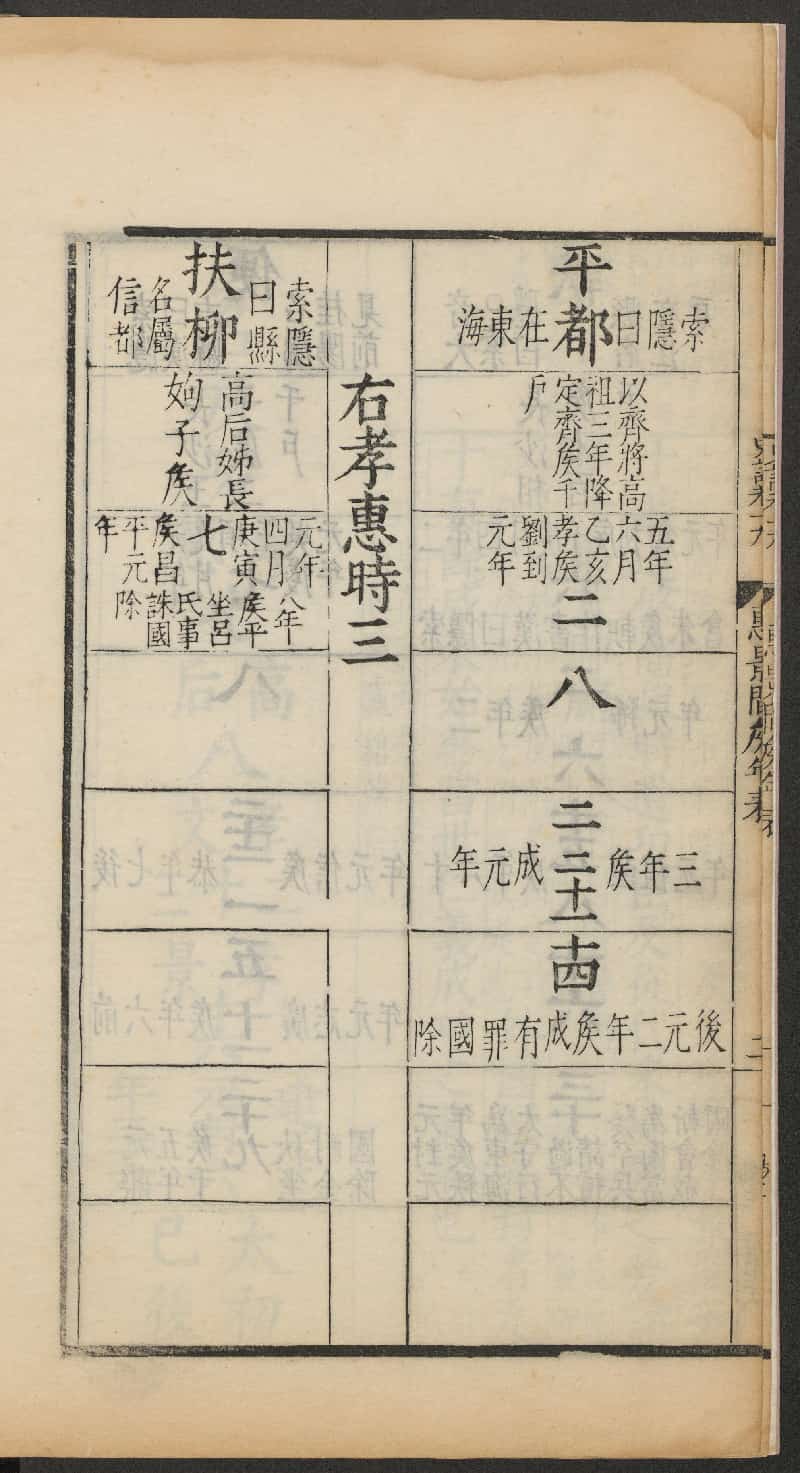 惠景間矦年表
二
平都
索隱曰在東海
以齊將高
祖三年降
定齊矦千
戶
五年
六月
乙亥
孝矦
劉到
元年
二
八
二
三年矦成元年
二十一
十四
後元二年矦成有罪國除
右孝惠時三
扶柳
索隱
曰縣
名屬
信都
高后姊長
姁子矦
元年
四月
庚寅
七
矦昌
平元
年
八年
矦平
坐呂
氏事
誅國
除
八